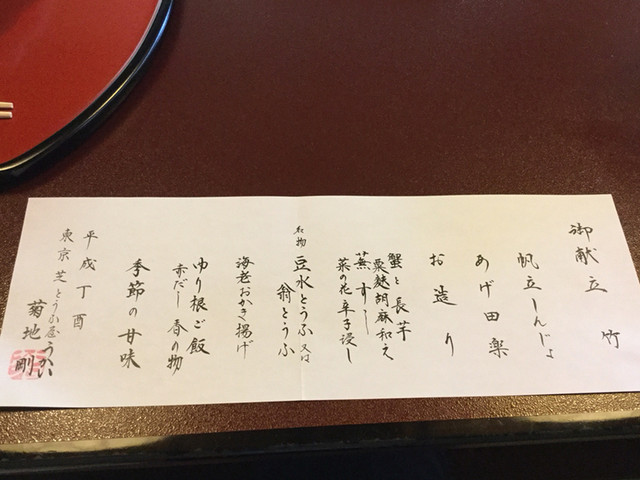 御献立　竹
帆立しんじょ
あげ田楽
お造り
蟹と長芋
粟麩胡麻和え
蕪すし
菜の花辛子浸し
名物 豆水とうふ 又は
翁とうふ
海老おかき揚げ
ゆり根ご飯
赤だし 香の物
季節の甘味
平成丁酉
東京 芝 とうふ屋うかい
菊地 剛